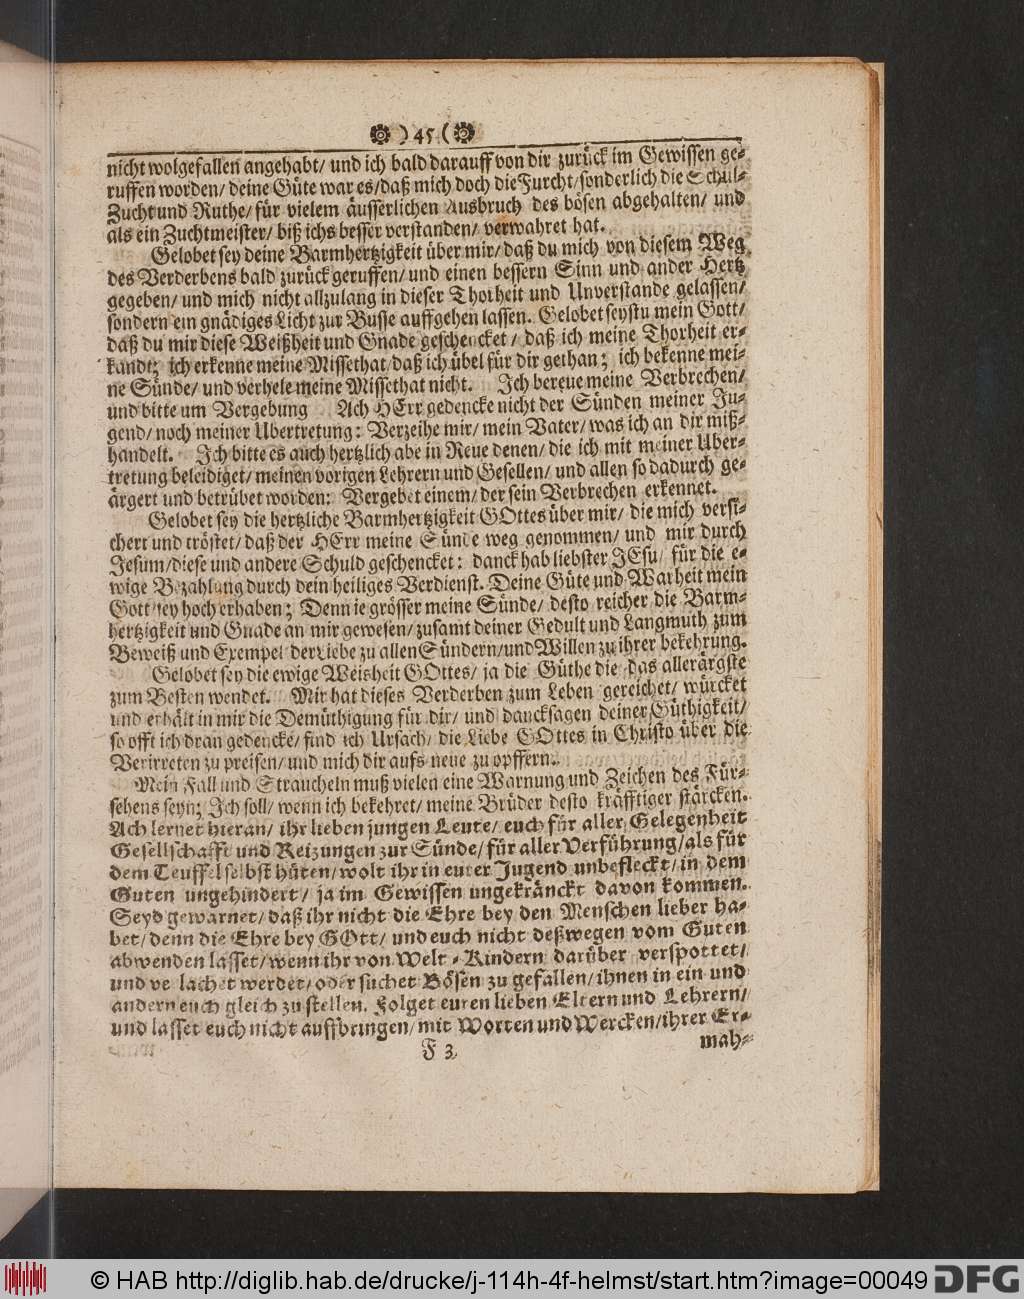 ) 45 (
nicht wolgefallen angehabt/ und ich bald darauff von dir zurück im Gewissen ge-
ruffen worden/ deine Güte war es/ daß mich doch die Furcht/ sonderlich die Schul-
Zucht und Ruthe/ für vielem äusserlichen Ausbruch des bösen abgehalten/ und
als ein Zuchtmeister/ biß ichs besser verstanden/ verwahret hat.
Gelobet sey deine Barmhertzigkeit über mir/ daß du mich von diesem Weg
des Verderbens bald zurück geruffen/ und einen bessern Sinn und ander Hertz
gegeben/ und mich nicht allzulang in dieser Thorheit und Unverstande gelassen/
sondern ein gnädiges Licht zur Busse auffgehen lassen. Gelobet seystu mein Gott/
daß du mir diese Weißheit und Gnade geschencket/ daß ich meine Thorheit er-
kandt; ich erkenne meine Missethat/ daß ich übel für dir gethan; ich bekenne mei-
ne Sünde/ und verhele meine Missethat nicht. Ich bereue meine Verbrechen/
und bitte um Vergebung Ach HErr gedencke nicht der Sünden meiner Ju-
gend/ noch meiner Ubertretung: Verzeihe mir/ mein Vater/ was ich an dir miß-
handelt. Ich bitte es auch hertzlich abe in Reue denen/ die ich mit meiner Uber-
tretung beleidiget/ meinen vorigen Lehrern und Gesellen/ und allen so dadurch ge-
ärgert und betrübet worden: Vergebet einem/ der sein Verbrechen erkennet.
Gelobet sey die hertzliche Barmhertzigkeit GOttes über mir/ die mich versi-
chert und tröstet/ daß der HErr meine Sünde weg genommen/ und mir durch
Jesum/ diese und andere Schuld geschencket: danck hab liebster JEsu/ für die e-
wige Bezahlung durch dein heiliges Verdienst. Deine Güte und Warheit mein
Gott sey hoch erhaben; Denn ie grösser meine Sünde/ desto reicher die Barm-
hertzigkeit und Gnade an mir gewesen/ zusamt deiner Gedult und Langmuth zum
Beweiß und Exempel der Liebe zu allen Sündern/ und Willen zu ihrer bekehrung.
Gelobet sey die ewige Weisheit GOttes/ ja die Güthe die das allerärgste
zum Besten wendet. Mir hat dieses Verderben zum Leben gereichet/ würcket
und erhält in mir die Demüthigung für dir/ und dancksagen deiner Güthigkeit/
so offt ich dran gedencke/ find ich Ursach/ die Liebe GOttes in Christo über die
Verirreten zu preisen/ und mich dir aufs neue zu opffern.
Mein Fall und Straucheln muß vielen eine Warnung und Zeichen des Für-
sehens seyn; Ich soll/ wenn ich bekehret/ meine Brüder desto kräfftiger stärcken.
Ach lernet hieran/ ihr lieben jungen Leute/ euch für aller Gelegenheit
Gesellschafft und Reizungen zur Sünde/ für aller Verführung/ als für
dem Teuffel selbst hüten/ wolt ihr in eurer Jugend unbefleckt/ in dem
Guten ungehindert/ ja im Gewissen ungekränckt davon kommen.
Seyd gewarnet/ daß ihr nicht die Ehre bey den Menschen lieber ha-
bet/ denn die Ehre bey GOtt/ und euch nicht deßwegen vom Guten
abwenden lasset/ wenn ihr von Welt-Kindern darüber verspottet/
und ve lachet werdet/ oder suchet Bösen zu gefallen/ ihnen in ein und
andern euch gleich zu stellen. Folget euren lieben Eltern und Lehrern/
und lasset euch nicht auffbringen/ mit Worten und Wercken/ ihrer Er-
F 3
mah-
© HAB http://diglib.hab.de/drucke/j-114h-4f-helmst/start.htm?image=00049
DFG